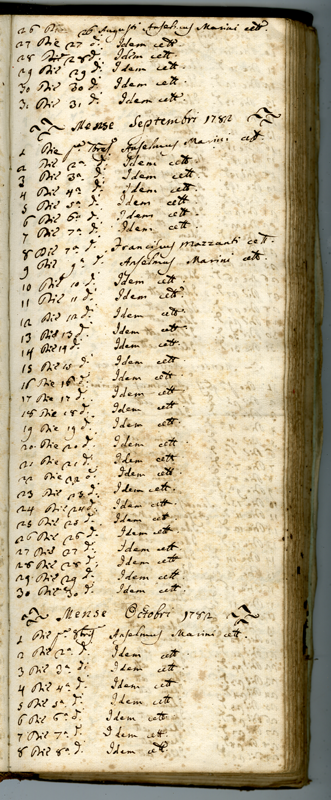 26 Die 26 Augusti Anselmus Marini cett.
27 Die 27 d. Idem cett.
28 Die 28 d. Idem cett.
29 Die 29 d. Idem cett.
30 Die 30 d. Idem cett.
31 Die 31 d. Idem cett.
Mense Septembri 1782
1 Die pa 7bris Anselmus Marini cett.
2 Die 2a d. Idem cett.
3 Die 3a d. Idem cett.
4 Die 4a d. Idem cett.
5 Die 5a d. Idem cett.
6 Die 6a d. Idem cett.
7 Die 7a d. Idem cett.
8 Die 7a d. Franciscus Mazzanti cett.
9 Die 9a d. Anselmus Marini cett.
10 Die 10 d. Idem cett.
11 Die 11 d. Idem cett.
12 Die 12 d. Idem cett.
13 Die 13 d. Idem cett.
14 Die 14 d. Idem cett.
15 Die 15 d. Idem cett.
16 Die 16 d. Idem cett.
17 Die 17 d. Idem cett.
18 Die 18 d. Idem cett.
19 Die 19 d. Idem cett.
20 Die 20 d. Idem cett.
21 Die 21 d. Idem cett.
22 Die 22 d. Idem cett.
23 Die 23 d. Idem cett.
24 Die 24 d. Idem cett.
25 Die 25 d. Idem cett.
26 Die 26 d. Idem cett.
27 Die 27 d. Idem cett.
28 Die 28 d. Idem cett.
29 Die 29 d. Idem cett.
30 Die 30 d. Idem cett.
Mense Octobri 1782
1 Die pa 8bris Anselmus Marini cett.
2 Die 2a d. Idem cett.
3 Die 3a d. Idem cett.
4 Die 4a d. Idem cett.
5 Die 5a d. Idem cett.
6 Die 6a d. Idem cett.
7 Die 7a d. Idem cett.
8 Die 8a d. Idem cett.